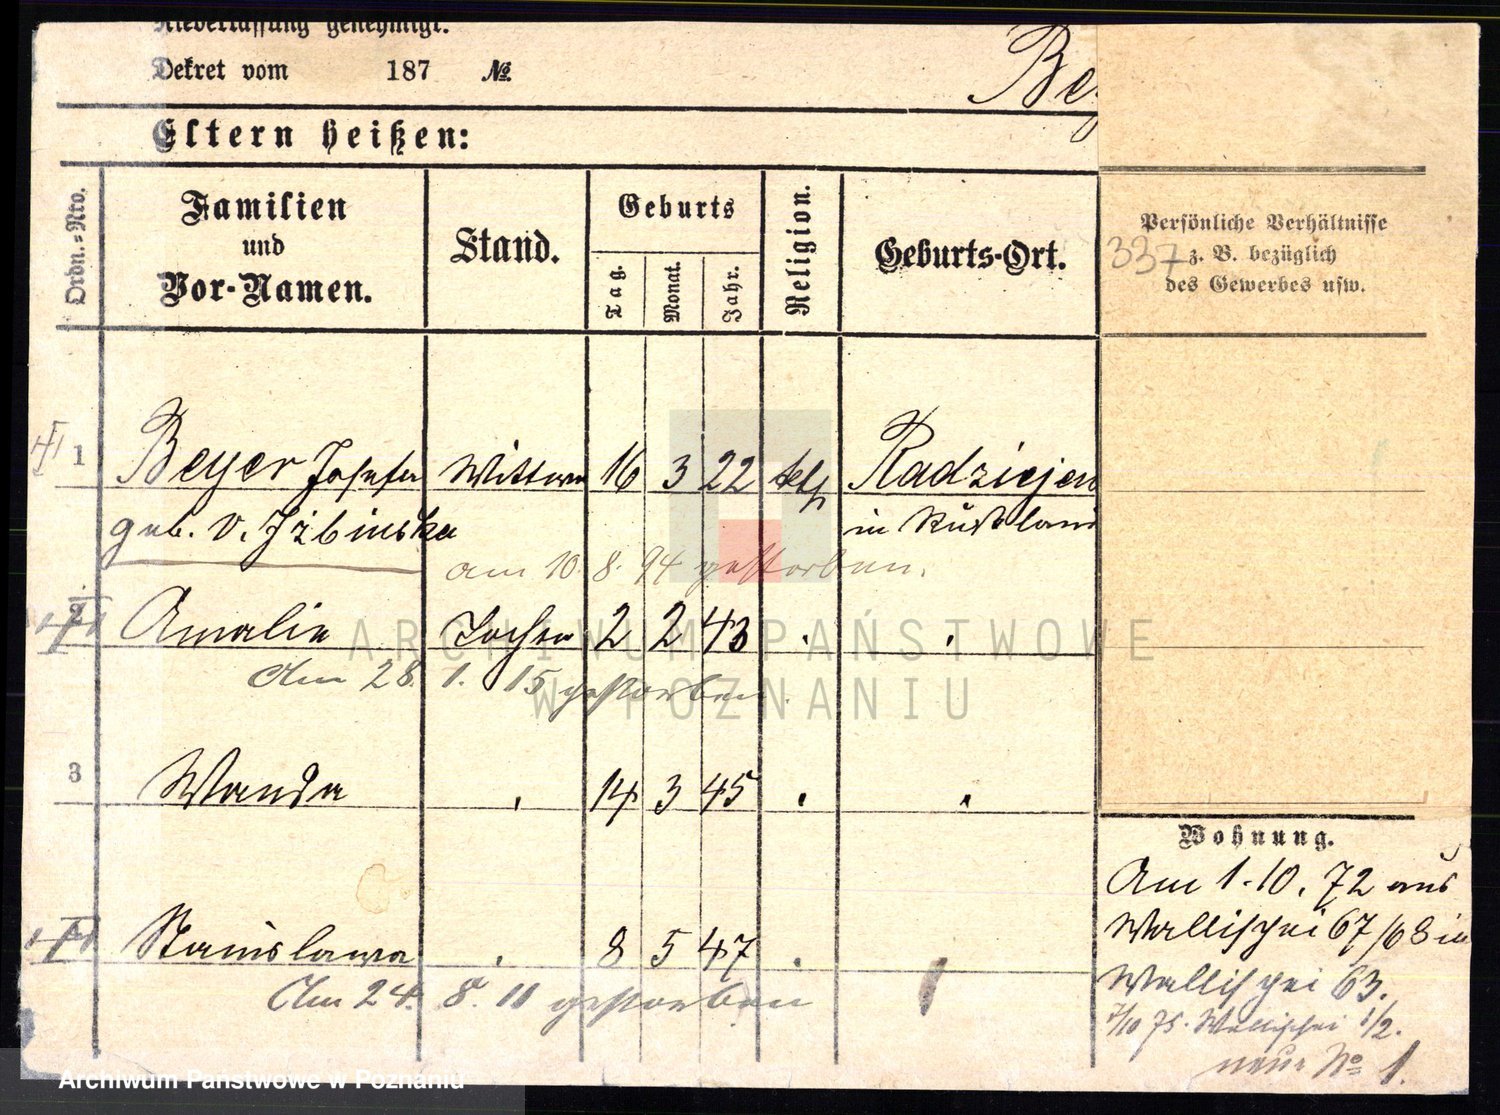 Niederlassung genehmigt.
Dekret vom 187 №
Bey
Eltern heißen:
Ordn.=Nro.
Familien
und
Vor-Namen.
Stand.
Geburts
Tag.
Monat.
Jahr.
Religion.
Geburts-Ort.
Persönliche Verhältnisse
z. B. bezüglich
des Gewerbes usw.
337
1 Beyer Josefa Wittwe 16 3 22 kth Radziejewo
geb. v. Izbinska in Rußland
am 10. 8. 94 gestorben.
2 Amalie Tochter 2 2 43
Am 28. 1. 15 gestorben.
3 Wanda 14 3 45
Stanislawa 8 5 47
Am 24. 8. 11 gestorben
Wohnung.
Am 1. 10. 72 aus
Wallischei 67/68 in
Wallischei 63.
1/10 75. Wallischei 1/2.
neue No 1.
ARCHIWUM PAŃSTWOWE
W POZNANIU
Archiwum Państwowe w Poznaniu